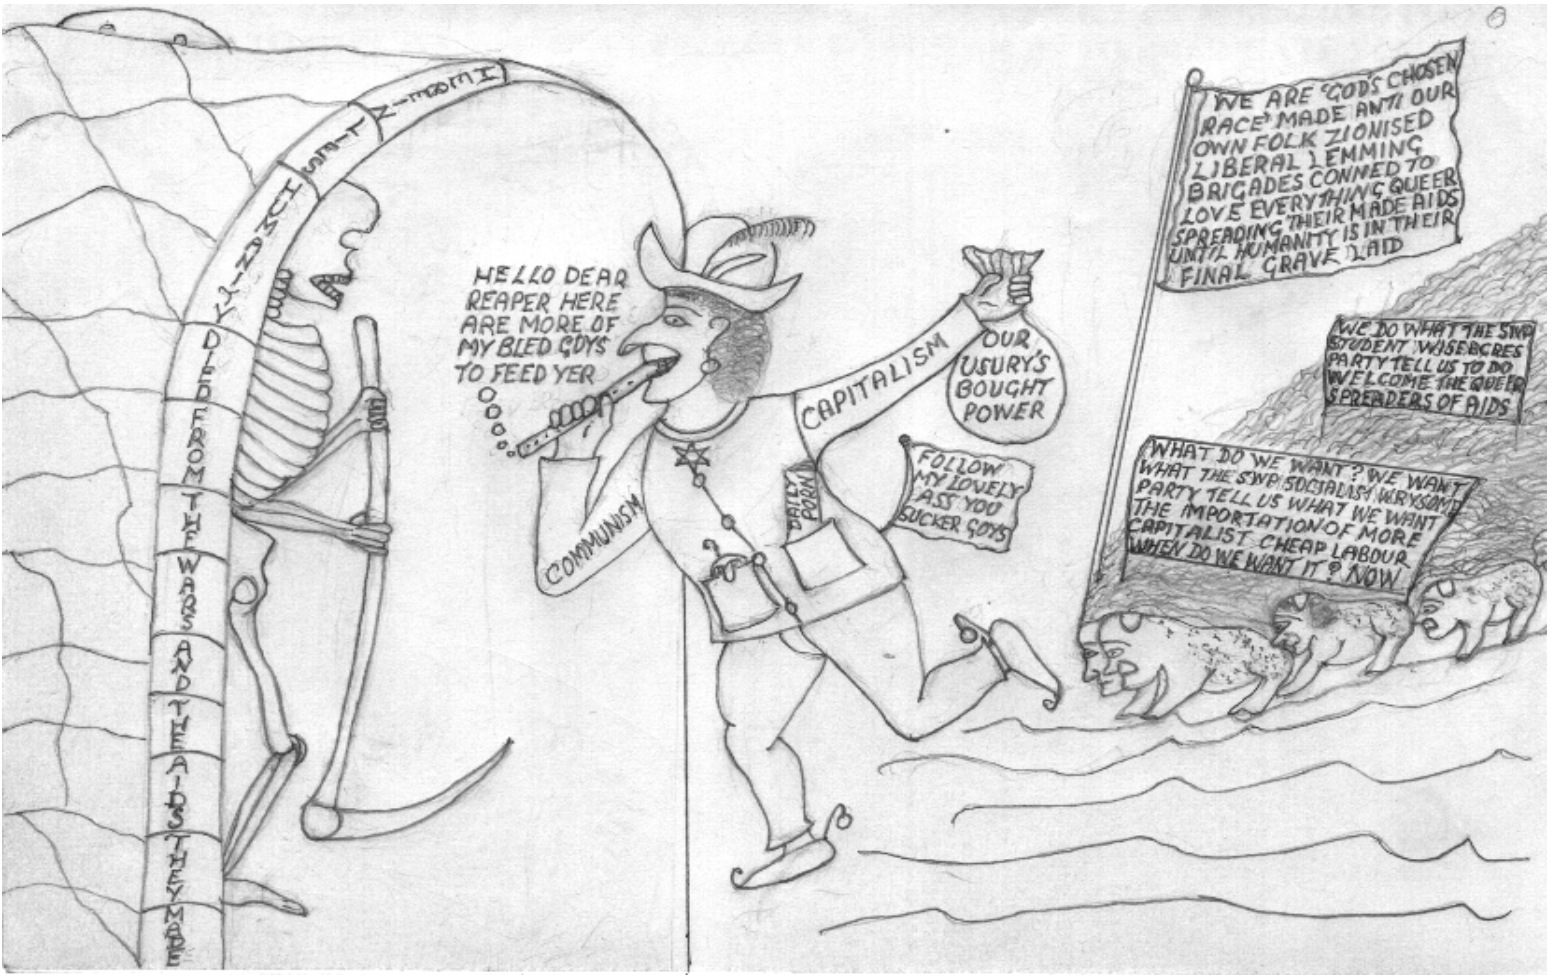 HEREIN
LIES
HUMANITY
DIED
FROM
THE
WARS
AND
THE
AIDS
THEY
MADE
HELLO DEAR
REAPER HERE
ARE MORE OF
MY BLED GUYS
TO FEED YER
COMMUNISM
CAPITALISM
OUR
USURY'S
BOUGHT
POWER
DAILY
PORN
FOLLOW
MY LOVELY
ASS YOU
SUCKER GUYS
WE ARE 'GOD'S CHOSEN
RACE' MADE ANTI OUR
OWN FOLK ZIONISED
LIBERAL LEMMING
BRIGADES CONNED TO
LOVE EVERYTHING QUEER
SPREADING THEIR MADE AIDS
UNTIL HUMANITY IS IN THEIR
FINAL GRAVE LAID
WE DO WHAT THE SWP
STUDENT WISEACRES
PARTY TELL US TO DO
WELCOME THE QUEER
SPREADERS OF AIDS
WHAT DO WE WANT? WE WANT
WHAT THE SWP
PARTY TELL US WHAT WE WANT
THE IMPORTATION OF MORE
CAPITALIST CHEAP LABOUR
WHEN DO WE WANT IT? NOW